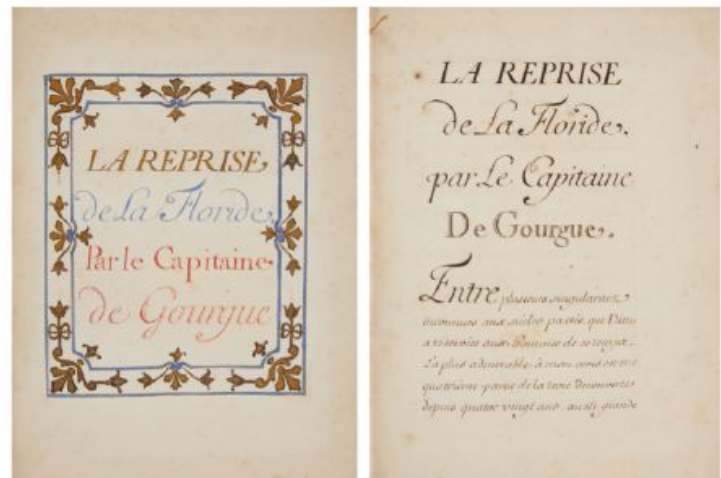 LA REPRISE
de La Floride
Par le Capitaine
de Gourgue
LA REPRISE
de La Floride.
par Le Capitaine
De Gourgue.
Entre plusieurs singularitez
inconnues aux siecles passés, que Dieu
a reservées aux hommes de ce temps.
La plus admirable, a mon avis est une
quatriéme partie de la terre decouverte
depuis quatre vingt ans, aussi grande